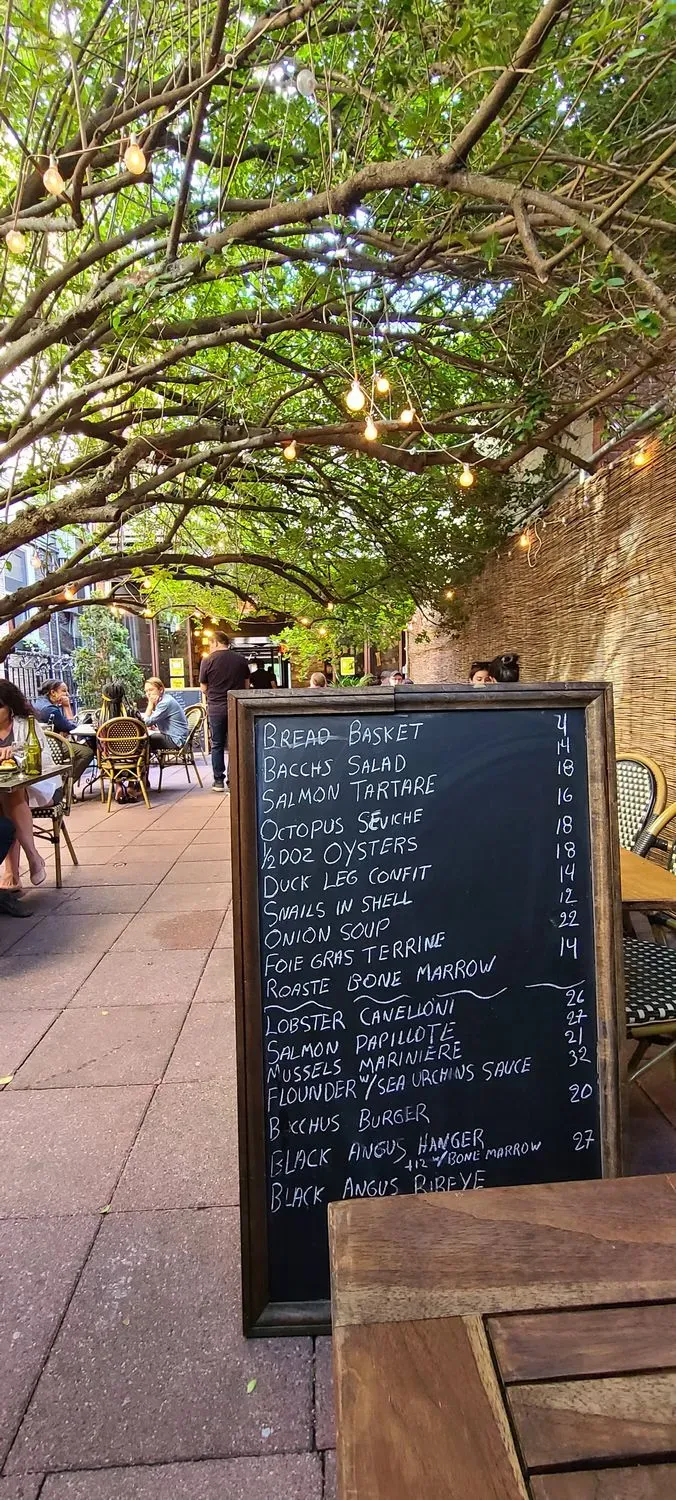 BREAD BASKET 4
BACCHS SALAD 14
SALMON TARTARE 18
OCTOPUS SEVICHE 16
½ DOZ OYSTERS 18
DUCK LEG CONFIT 18
SNAILS IN SHELL 14
ONION SOUP 12
FOIE GRAS TERRINE 22
ROASTE BONE MARROW 14
LOBSTER CANELLONI 26
SALMON PAPILLOTE 27
MUSSELS MARINIÈRE 21
FLOUNDER W/ SEA URCHINS SAUCE 32
B CCHUS BURGER 20
BLACK ANGUS HANGER 27
+12 W/ BONE MARROW
BLACK ANGUS RIBEYE